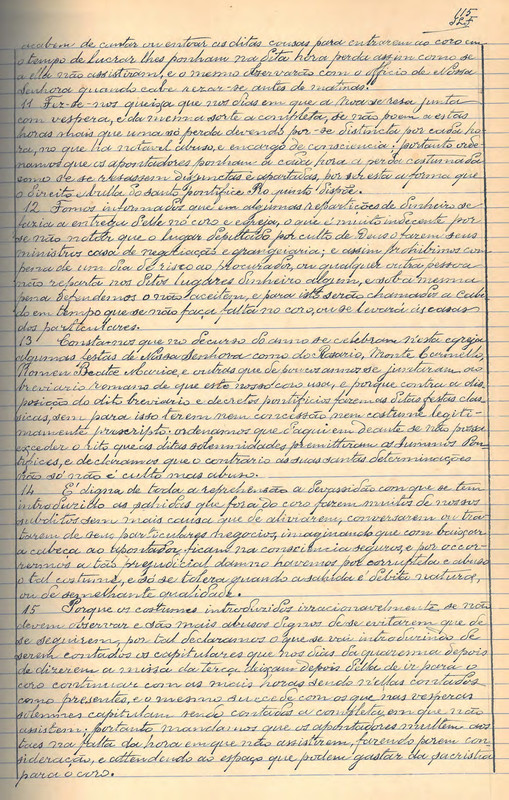 115
acabem de cantar ou entoar as ditas cousas para entrarem ao coro em
o tempo de lucrar lhes ponham na dita hora perda assim como se
a ella não assistiram, e o mesmo observarão com o officio de Nossa
Senhora quando cabe rezar-se antes de matinas.
11 Fez-se-nos queixa que nos dias em que a Noa se resa junta
com vespera, e da mesma sorte a completa, se não põem a estas
horas mais que uma só perda devendo por-se distincta por cada ho-
ra, no que ha notavel abuso, e encargo de consciencia; portanto orde-
namos que os apontadores ponham a cada hora a perda costumada
como se se resassem disjunctas e apartadas, por ser esta a forma que
o direito e bulla do santo pontifice Pio quinto dispõe.
12 Fomos informados que em algumas repartições de dinheiro se
fazia a entrega delle no coro e egreja, o que é muito indecente por
se não notar que o lugar deputado por culto de Deus o fazem seus
ministros casa de negociação e grangearia; e assim prohibimos com
pena de um dia de risco ao procurador, ou qualquer outra pessoa
não reparta nos ditos lugares dinheiro algum, e sob a mesma
pena defendemos o não aceitem, e para isto serão chamados a cabi-
do em tempo que se não faça falta no coro, ou se levará ás casas
dos particulares.
13 Constamos que no decurso do anno se celebram n'esta egreja
algumas festas de Nossa Senhora como do Rosario, Monte Carmello,
Nomen Beatæ Mariæ, e outras que de poucos annos se juntaram ao
breviario romano de que este nosso coro usa, e porque contra a dis-
posição do dito breviario e decretos pontificios fazem as ditas festas clas-
sicas, sem para isso terem nem concissão nem costume legiti-
mamente prascripto: ordenamos que d'aqui em deante se não possa
exceder o rito que as ditas solemnidades premittiram os summos Pon-
tifices, e declaramos que o contrario as suas santas determinações
não só não é culto mas abuso.
14 E' digna de toda a reprehensão a devassidão com que se tem
introduzido as sahidas que fora do coro fazem muitos de nossos
subditos sem mais causa que de aliviarem, conversarem ou tra-
tarem de seus particulares negocios, imaginando que com baixar
a cabeça ao apontador, ficam na consciencia seguros, e por occor-
rermos a tão prejudicial damno havemos por corruptela e abuso
o tal custume, e só se tolera quando a sahida é debita naturæ,
ou de semelhante qualidade.
15 Porque os costumes introduzidos irracionavelmente se não
devem observar e são mais abusos dignos de se evitarem que de
se seguirem, por tal declaramos o que se vai introduzindo de
serem contados os capitulares que nos dias da quaresma depois
de dizerem a missa da terça deixam depois della de ir para o
coro continuar com as mais horas sendo n'ellas contados
como presentes, e o mesmo succede com os que nas vesperas
solemnes capitulam sendo contados a completa, em que não
assistem; portanto mandamos que os apontadores multem aos
taes na falta da hora em que não assistirem, fazendo porem con-
sideração, e attendendo ao espaço que podem gastar da sacristia
para o coro.